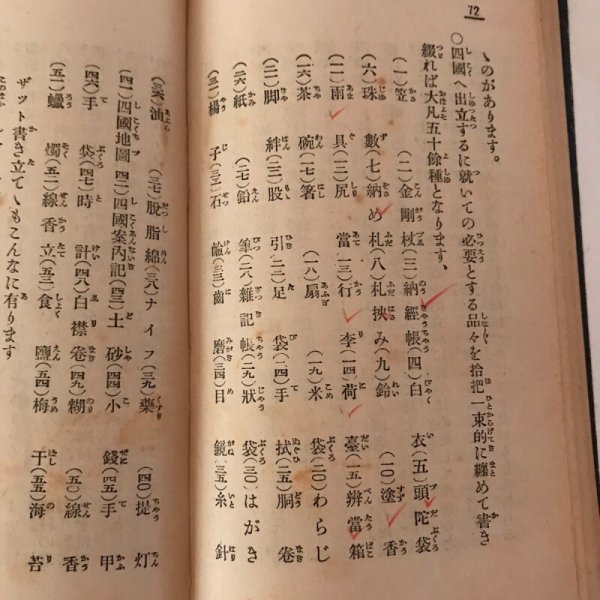 72
ゝのがあります。
〇四國へ出立するに就いての必要とする品々を拾把一束的に纏めて書き
綴れば大凡五十餘種となります。
(一)笠 (二)金剛杖(三)納經帳(四)白衣(五)頭陀袋
(六)珠數(七)納め札(八)札挾み(九)鈴 (一〇)塗香
(一一)雨具(一二)尻當(一三)行李(一四)荷臺(一五)辨當箱
(一六)茶碗(一七)箸 (一八)扇 (一九)米袋(二〇)わらじ
(二一)脚絆(二二)股引(二三)足袋(二四)手拭(二五)胴卷
(二六)紙 (二七)鉛筆(二八)雜記帳(二九)狀袋(三〇)はがき
(三一)楊子(三二)石鹼(三三)齒磨(三四)目鏡(三五)糸針
(三六)油 (三七)脫脂綿(三八)ナイフ(三九)藥 (四〇)提灯
(四一)四國地圖(四二)四國案內記(四三)土砂(四四)小錢(四五)手甲
(四六)手袋(四七)時計(四八)白襟卷(四九)糊 (五〇)線香
(五一)蠟燭(五二)線香立(五三)食鹽(五四)梅干(五五)海苔
ザット書き立てゝもこんなに有ります